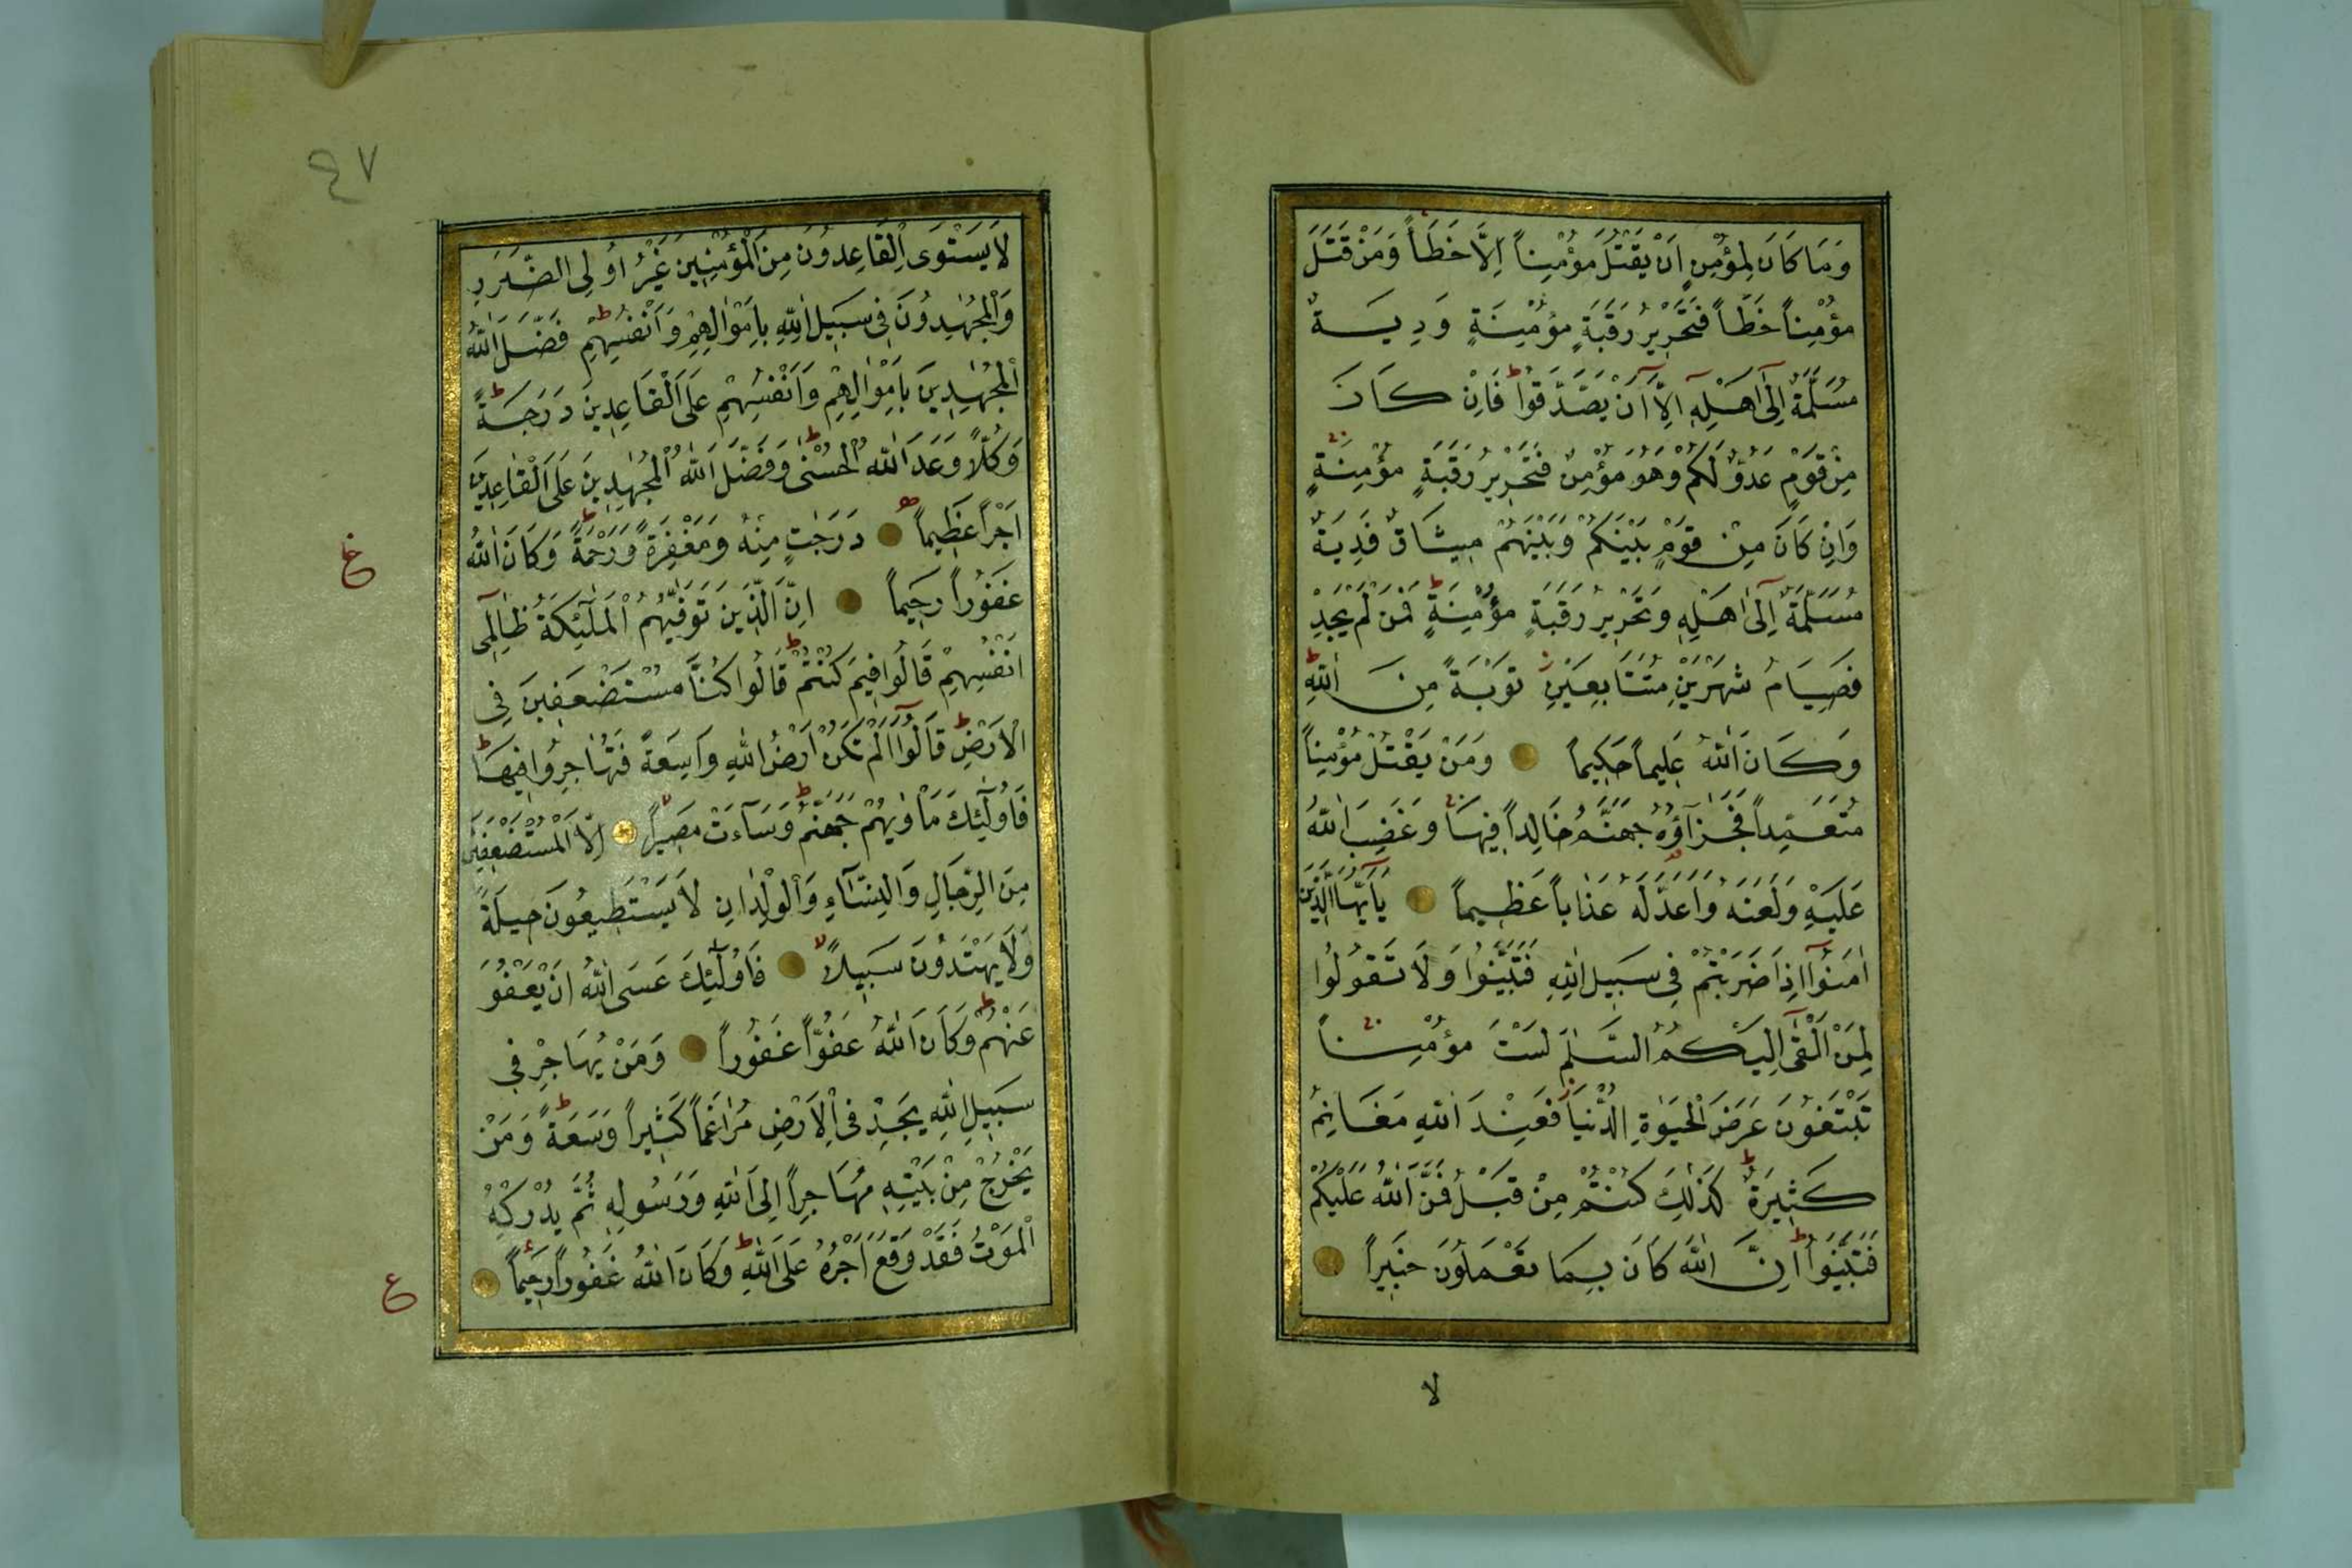 وَمَا كَانَ لِمُؤْمِنٍ اَنْ يَقْتُلَ مُؤْمِناً اِلَّا خَطَأً وَمَنْ قَتَلَ
مُؤْمِناً خَطَأً فَتَحْرِيرُ رَقَبَةٍ مُؤْمِنَةٍ وَدِيَةٌ
مُسَلَّمَةٌ اِلٰٓى اَهْلِهِ اِلَّٓا اَنْ يَصَّدَّقُوا ط فَاِنْ كَانَ
مِنْ قَوْمٍ عَدُوٍّ لَكُمْ وَهُوَ مُؤْمِنٌ فَتَحْرِيرُ رَقَبَةٍ مُؤْمِنَةٍ
وَاِنْ كَانَ مِنْ قَوْمٍ بَيْنَكُمْ وَبَيْنَهُمْ مِيثَاقٌ فَدِيَةٌ
مُسَلَّمَةٌ اِلٰٓى اَهْلِهِ وَتَحْرِيرُ رَقَبَةٍ مُؤْمِنَةٍ ط فَمَنْ لَمْ يَجِدْ
فَصِيَامُ شَهْرَيْنِ مُتَتَابِعَيْنِ تَوْبَةً مِنَ اللّٰهِ ط
وَكَانَ اللّٰهُ عَلِيماً حَكِيماً وَمَنْ يَقْتُلْ مُؤْمِناً
مُتَعَمِّداً فَجَزَٓاؤُهُ جَهَنَّمُ خَالِداً فِيهَا وَغَضِبَ اللّٰهُ
عَلَيْهِ وَلَعَنَهُ وَاَعَدَّ لَهُ عَذَاباً عَظِيماً يَٓا اَيُّهَا الَّذِينَ
اٰمَنُٓوا اِذَا ضَرَبْتُمْ فِى سَبِيلِ اللّٰهِ فَتَبَيَّنُوا وَلَا تَقُولُوا
لِمَنْ اَلْقٰٓى اِلَيْكُمُ السَّلٰمَ لَسْتَ مُؤْمِناً
تَبْتَغُونَ عَرَضَ الْحَيٰوةِ الدُّنْيَا فَعِنْدَ اللّٰهِ مَغَانِمُ
كَثِيرَةٌ ط كَذٰلِكَ كُنْتُمْ مِنْ قَبْلُ فَمَنَّ اللّٰهُ عَلَيْكُمْ
فَتَبَيَّنُوا ط اِنَّ اللّٰهَ كَانَ بِمَا تَعْمَلُونَ خَبِيراً
لا
٤٧
لَا يَسْتَوِى الْقَاعِدُونَ مِنَ الْمُؤْمِنِينَ غَيْرُ اُولِى الضَّرَرِ
وَالْمُجٰهِدُونَ فِى سَبِيلِ اللّٰهِ بِاَمْوَالِهِمْ وَاَنْفُسِهِمْ ط فَضَّلَ اللّٰهُ
الْمُجٰهِدِينَ بِاَمْوَالِهِمْ وَاَنْفُسِهِمْ عَلَى الْقَاعِدِينَ دَرَجَةً ط
وَكُلّاً وَعَدَ اللّٰهُ الْحُسْنٰى ط وَفَضَّلَ اللّٰهُ الْمُجٰهِدِينَ عَلَى الْقَاعِدِينَ
اَجْراً عَظِيماً دَرَجَاتٍ مِنْهُ وَمَغْفِرَةً وَرَحْمَةً ط وَكَانَ اللّٰهُ
غَفُوراً رَحِيماً اِنَّ الَّذِينَ تَوَفّٰيهُمُ الْمَلٰٓئِكَةُ ظَالِمِٓى
اَنْفُسِهِمْ قَالُوا فِيمَ كُنْتُمْ ط قَالُوا كُنَّا مُسْتَضْعَفِينَ فِى
الْاَرْضِ ط قَالُٓوا اَلَمْ تَكُنْ اَرْضُ اللّٰهِ وَاسِعَةً فَتُهَاجِرُوا فِيهَا ط
فَاُولٰٓئِكَ مَأْوٰيهُمْ جَهَنَّمُ ط وَسَٓاءَتْ مَصِيراً لا اِلَّا الْمُسْتَضْعَفِينَ
مِنَ الرِّجَالِ وَالنِّسَٓاءِ وَالْوِلْدَانِ لَا يَسْتَطِيعُونَ حِيلَةً
وَلَا يَهْتَدُونَ سَبِيلاً لا فَاُولٰٓئِكَ عَسَى اللّٰهُ اَنْ يَعْفُوَ
عَنْهُمْ ط وَكَانَ اللّٰهُ عَفُوّاً غَفُوراً وَمَنْ يُهَاجِرْ فِى
سَبِيلِ اللّٰهِ يَجِدْ فِى الْاَرْضِ مُرَاغَماً كَثِيراً وَسَعَةً ط وَمَنْ
يَخْرُجْ مِنْ بَيْتِهِ مُهَاجِراً اِلَى اللّٰهِ وَرَسُولِهِ ثُمَّ يُدْرِكْهُ
الْمَوْتُ فَقَدْ وَقَعَ اَجْرُهُ عَلَى اللّٰهِ ط وَكَانَ اللّٰهُ غَفُوراً رَحِيماً
ع